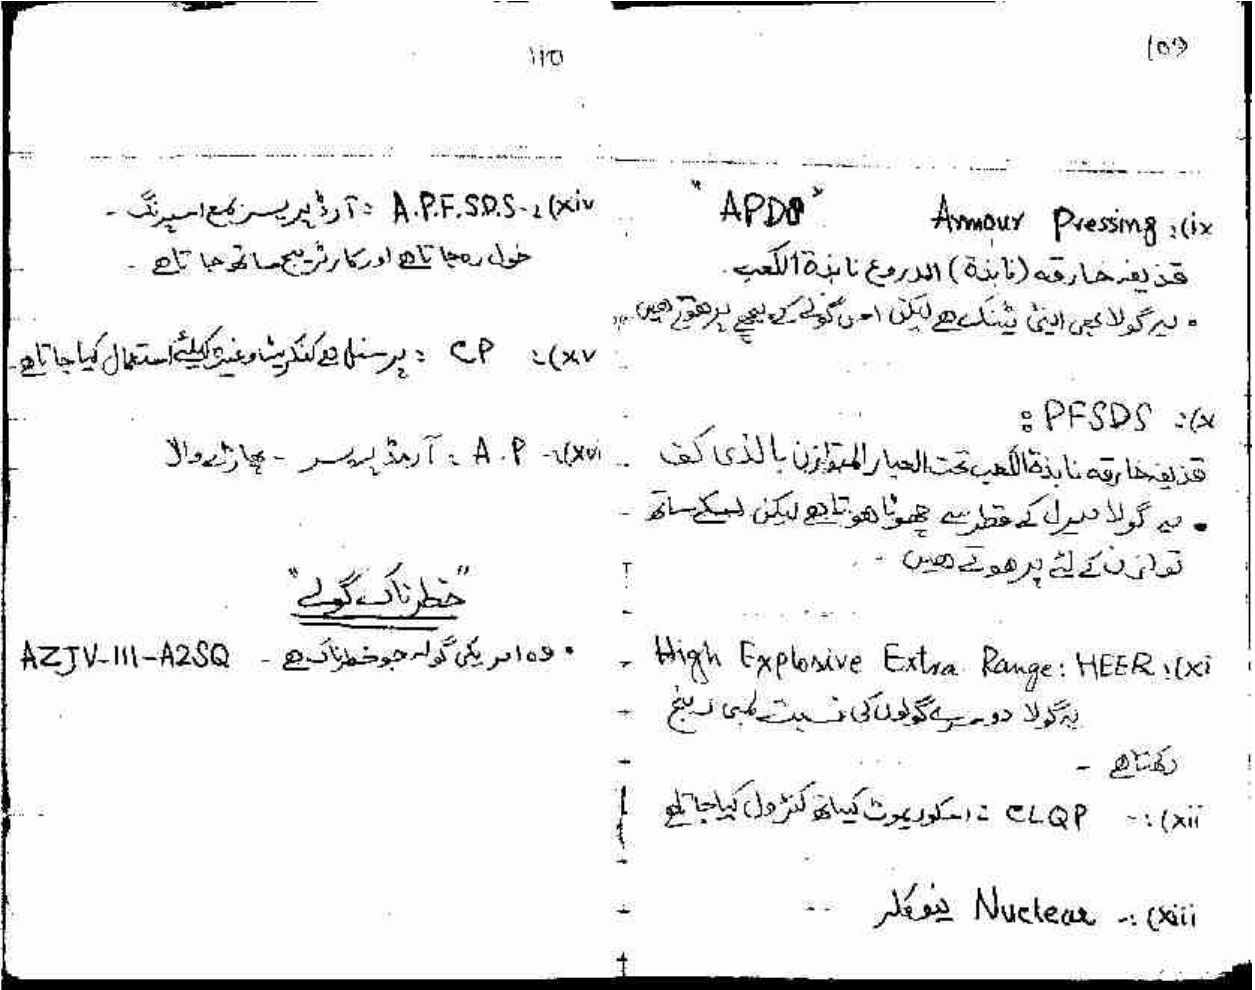 109
ix): Armour Pressing "APDS"
قذیفہ خارقہ (نابذة) الدروع نابذة الکعب۔
• یہ گولا بھی اینٹی ٹینک ہے لیکن اس گولے کے پیچھے پر ھوتے ھیں
x): PFSDS :
قذیفہ خارقہ نابذة الکعب تحت العیار المتوازن بالذی کف
• یہ گولا بیرل کے قطر سے چھوٹا ھوتا ہے لیکن اسکے ساتھ
توازن کے لئے پر ھوتے ھیں ۔
xi): High Explosive Extra Range: HEER
یہ گولا دوسرے گولوں کی نسبت لمبی رینج
رکھتا ہے ۔
xii):- CLQP : اسکو ریموٹ کیساتھ کنٹرول کیا جاتا ہے
xiii):- Nuclear نیوکلر
110
xiv):- A.P.F.S.D.S : آرڈ پریسر بمع اسپرنگ ۔
خول رہ جاتا ہے اور کارٹریج ساتھ جاتا ہے ۔
xv): CP : پرسنل ہے کنکریٹ وغیرہ کیلئے استعمال کیا جاتا ہے۔
xvi):- A.P : آرمڈ پریسر ۔ پھاڑنے والا
"خطرناک گولے"
• وہ امریکی گولہ جو خطرناک ہے ۔ AZJV-111-A2SQ